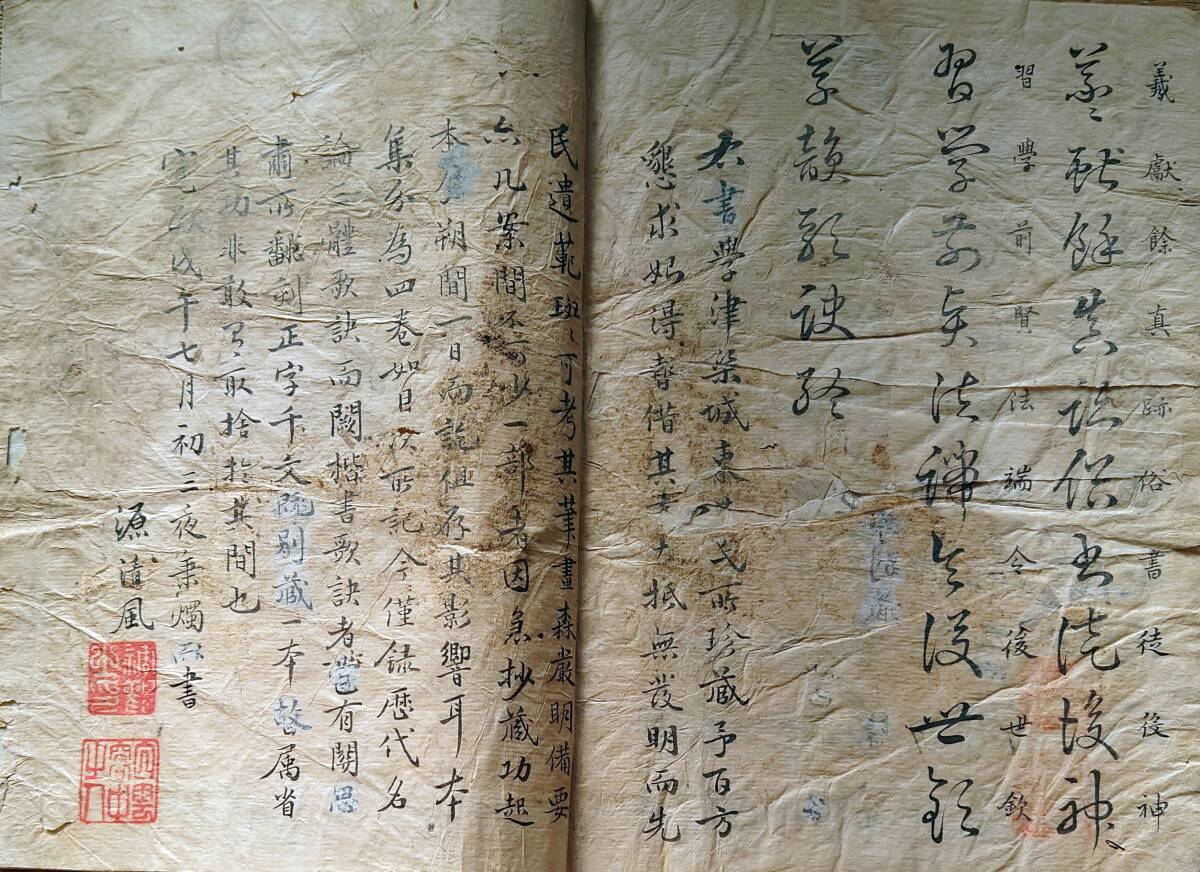 義獻餘真跡俗書徒後神
羲獻餘真跡俗書徒後神
習學前賢法端令後世欽
習學前賢法端令後世欽
草韻歌訣終
右書學津梁城東 氏所珍藏予百方
懇求始得暫借其 大抵無發明而先
民遺範班〻可考其筆畫森嚴明備要
亦几案間不可少一部者因急抄藏功起
本 朔間一日而訖但存其影響耳本
集分為四卷如目次所記今僅錄歷代名
論二體歌訣而闕楷書歌訣者 有関思
肅所翻刻正字千文既別藏一本故属省
其功非敢 取捨於其間也
寛政戊午七月初三夜秉燭 書
源清風